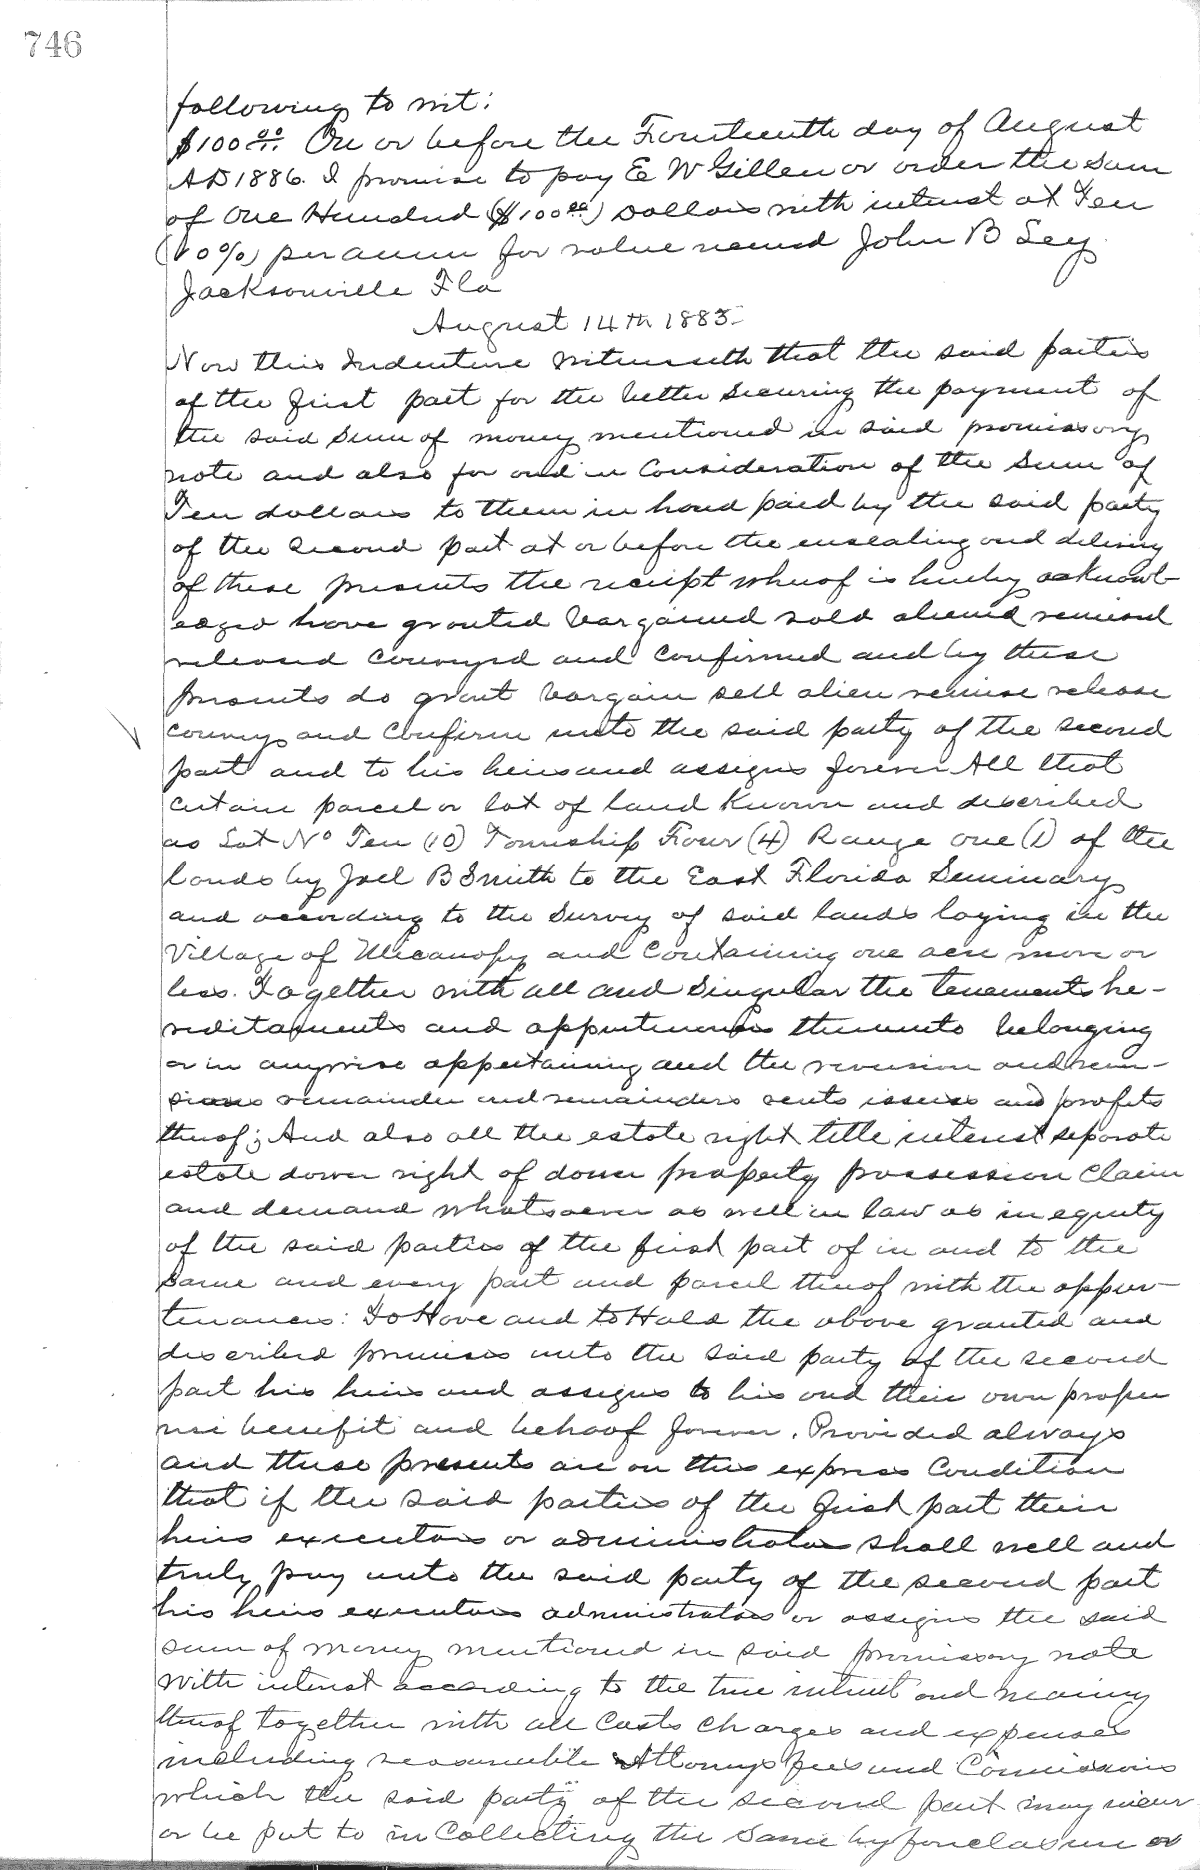 746
following to wit:
$100 00/.. On or before the Fourteenth day of August
AD 1886. I promise to pay E W Gillen or order the Sum
of One Hundred ($100 00) Dollars with interest at Ten
(10%) per annum for value received John B Ley
Jacksonville Fla
August 14th 1885
Now this Indenture Witnesseth that the said parties
of the first part for the better securing the payment of
the said Sum of money mentioned in said promissory
note and also for and in Consideration of the Sum of
Ten dollars to them in hand paid by the said party
of the second part at or before the ensealing and delivery
of these presents the receipt whereof is hereby acknowl-
edged have granted bargained sold aliened remised
released conveyed and confirmed and by these
presents do grant bargain sell alien remise release
convey and Confirm unto the said party of the second
part and to his heirs and assigns forever All that
certain parcel or lot of land Known and described
as Lot No Ten (10) Township Four (4) Range one (1) of the
lands by Joel B Smith to the East Florida Seminary
and according to the Survey of said lands laying in the
Village of Micanopy and Containing one acre more or
less. Together with all and Singular the tenements he-
reditaments and appurtenances thereunto belonging
or in anywise appertaining and the reversion and rever-
sions remainder and remainders rents issues and profits
thereof; And also all the estate right title interest separate
estate dower right of dower property possession Claim
and demand whatsoever as well in law as in equity
of the said parties of the first part of in and to the
same and every part and parcel thereof with the appur-
tenances: To Have and to Hold the above granted and
described premises unto the said party of the second
part his heirs and assigns to his and their own proper
use benefit and behoof forever. Provided always
and these presents are on this express Condition
that if the said parties of the first part their
heirs executors or administrators shall well and
truly pay unto the said party of the second part
his heirs executors administrators or assigns the said
sum of money mentioned in said promissory note
with interest according to the true intent and meaning
thereof together with all Costs charges and expenses
including reasonable Attorneys fees and Commissions
which the said party of the second part may incur
or be put to in Collecting the same by foreclosure or